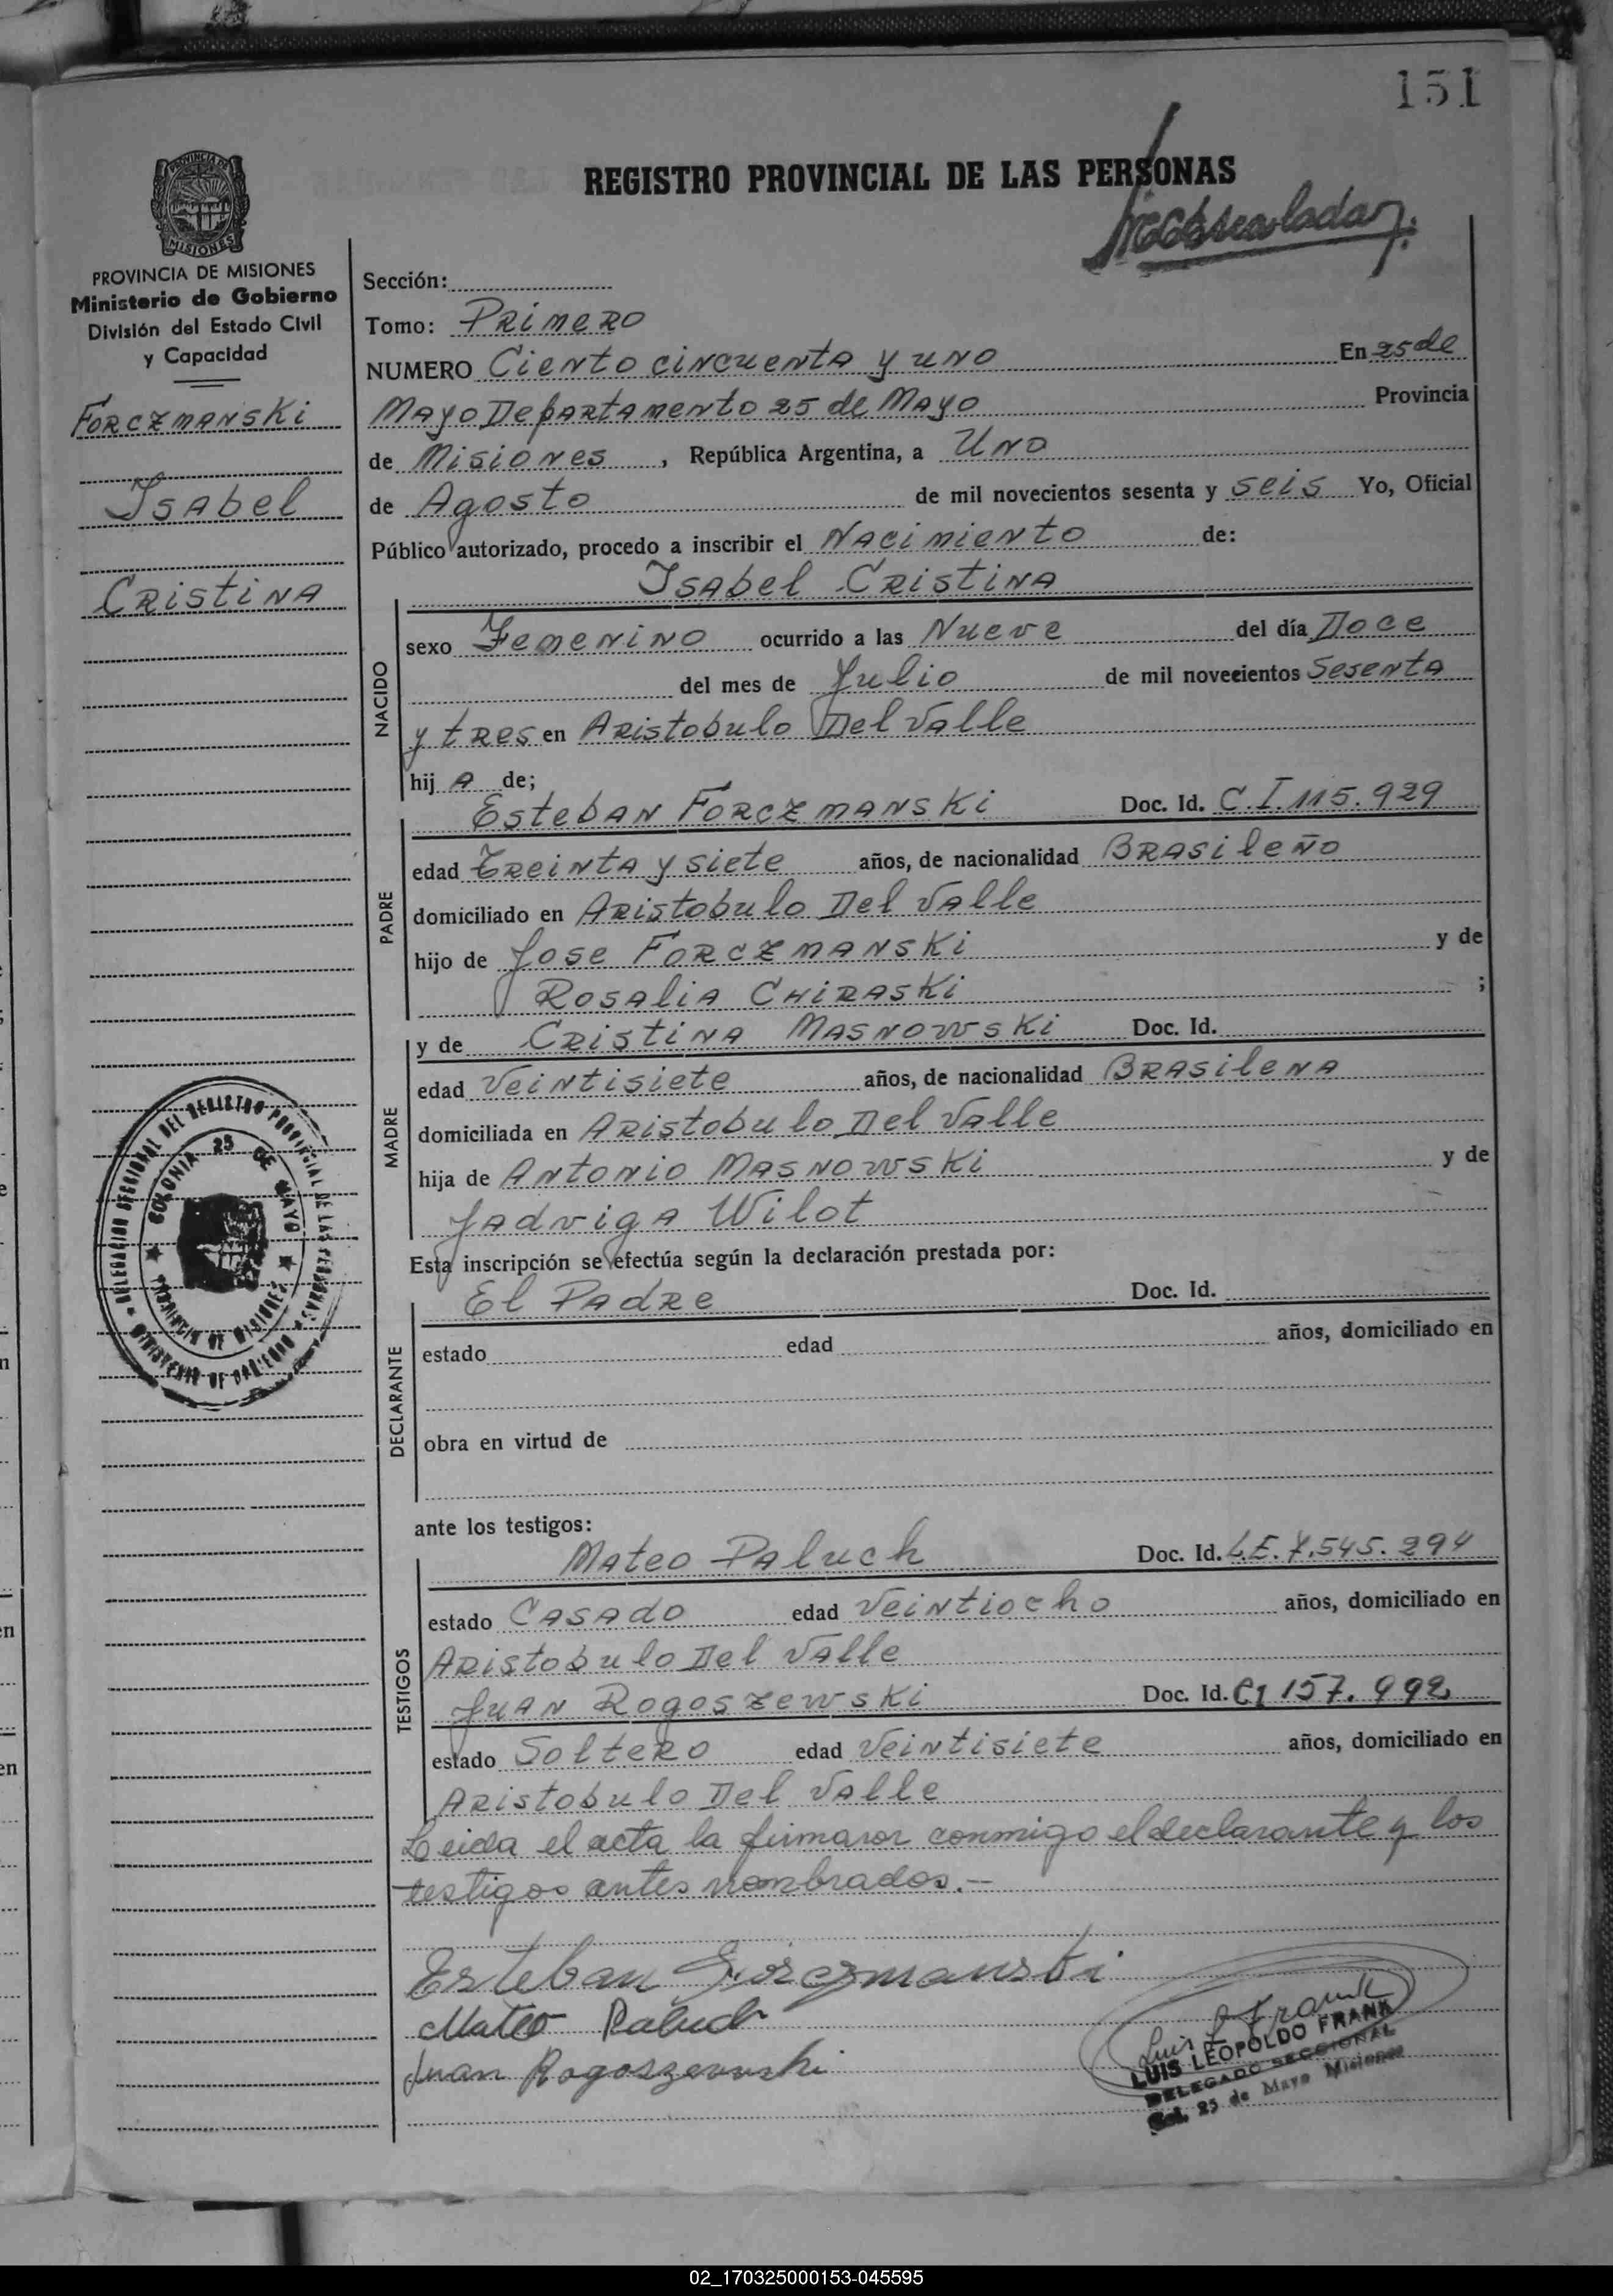 151
REGISTRO PROVINCIAL DE LAS PERSONAS
PROVINCIA DE
MISIONES
PROVINCIA DE MISIONES
Ministerio de Gobierno
División del Estado Civil
y Capacidad
Forczmanski
Isabel
Cristina
Sección:
Tomo: Primero
NUMERO Ciento cincuenta y uno En 25 de
Mayo Departamento 25 de Mayo Provincia
de Misiones, República Argentina, a Uno
de Agosto de mil novecientos sesenta y seis Yo, Oficial
Público autorizado, procedo a inscribir el Nacimiento de:
Isabel Cristina
NACIDO
sexo Femenino ocurrido a las Nueve del día Doce
del mes de Julio de mil novecientos Sesenta
y tres en Aristobulo Del Valle
hij a de;
Esteban Forczmanski Doc. Id. C.I. 115.929
PADRE
edad Treinta y siete años, de nacionalidad Brasileño
domiciliado en Aristobulo Del Valle
hijo de Jose Forczmanski y de
Rosalia Chiraski ;
y de Cristina Masnowski Doc. Id.
MADRE
edad Veintisiete años, de nacionalidad Brasilena
domiciliada en Aristobulo Del Valle
hija de Antonio Masnowski y de
Jadviga Wilot
Esta inscripción se efectúa según la declaración prestada por:
El Padre Doc. Id.
DECLARANTE
estado edad años, domiciliado en
obra en virtud de
ante los testigos:
Mateo Paluch Doc. Id. L.E. 7.545.294
TESTIGOS
estado Casado edad Veintiocho años, domiciliado en
Aristobulo Del Valle
Juan Rogoszewski Doc. Id. CI 157.992
estado Soltero edad Veintisiete años, domiciliado en
Aristobulo Del Valle
Leida el acta la firmaron conmigo el declarante y los
testigos antes nombrados.-
Esteban Forczmanski
Mateo Paluch
Juan Rogoszewski
Luis L Frank
LUIS LEOPOLDO FRANK
DELEGADO SECCIONAL
Col. 25 de Mayo Misiones
DELEGACION SECCIONAL DEL REGISTRO PROVINCIAL DE LAS PERSONAS
COLONIA 25 DE MAYO
PROVINCIA DE MISIONES
MINISTERIO DE GOBIERNO
02_170325000153-045595